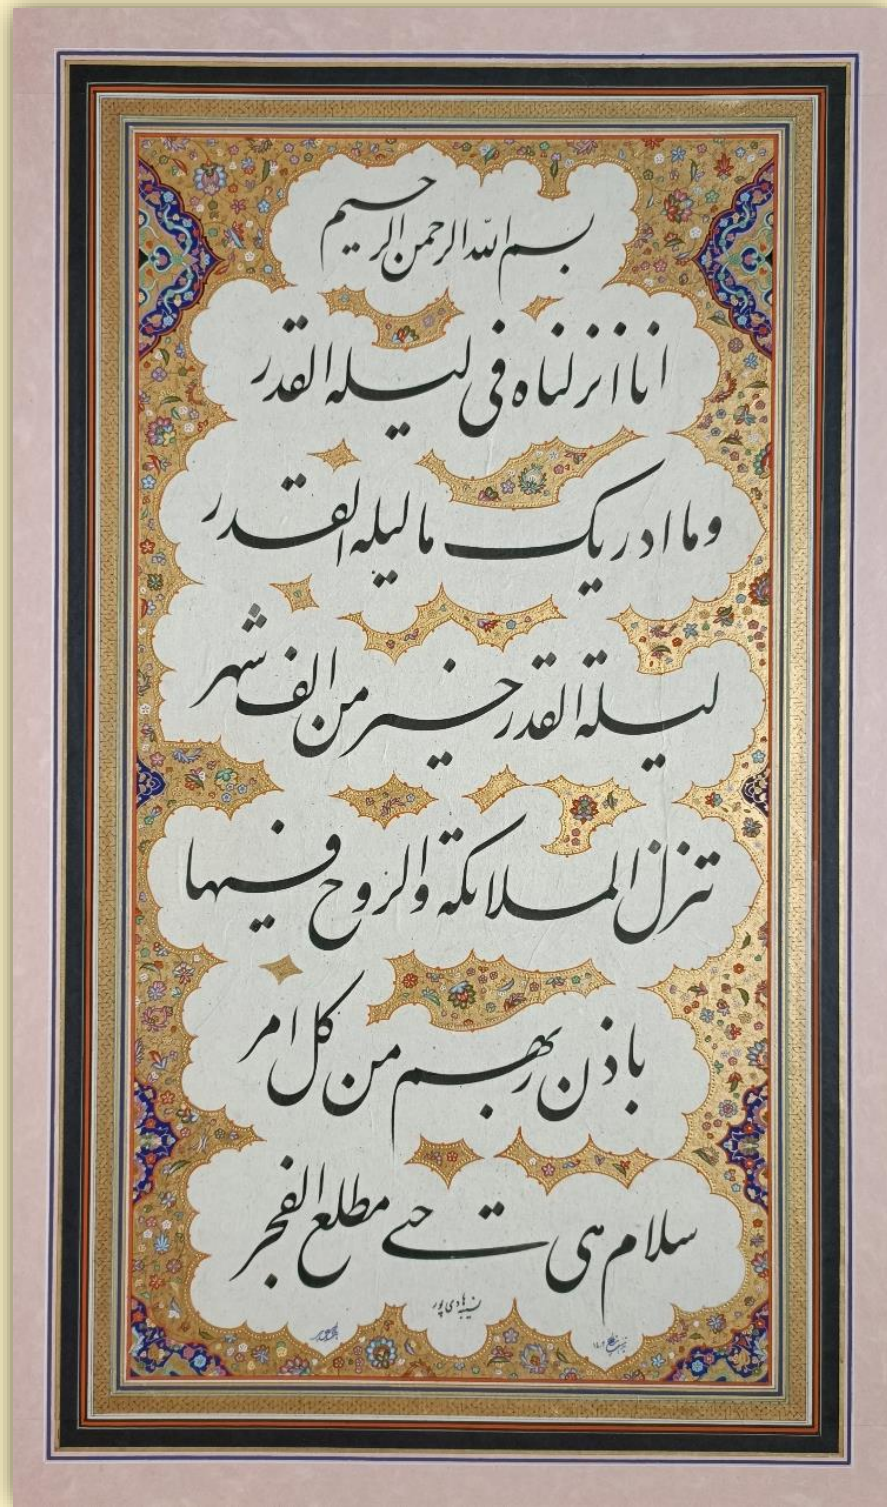 بسم الله الرحمن الرحیم
انا انزلناه فی لیله القدر
وما ادریک ما لیله القدر
لیلة القدر خیر من الف شهر
تنزل الملائکة والروح فیها
باذن ربهم من کل امر
سلام هی حتی مطلع الفجر
نسیبه هادی پور